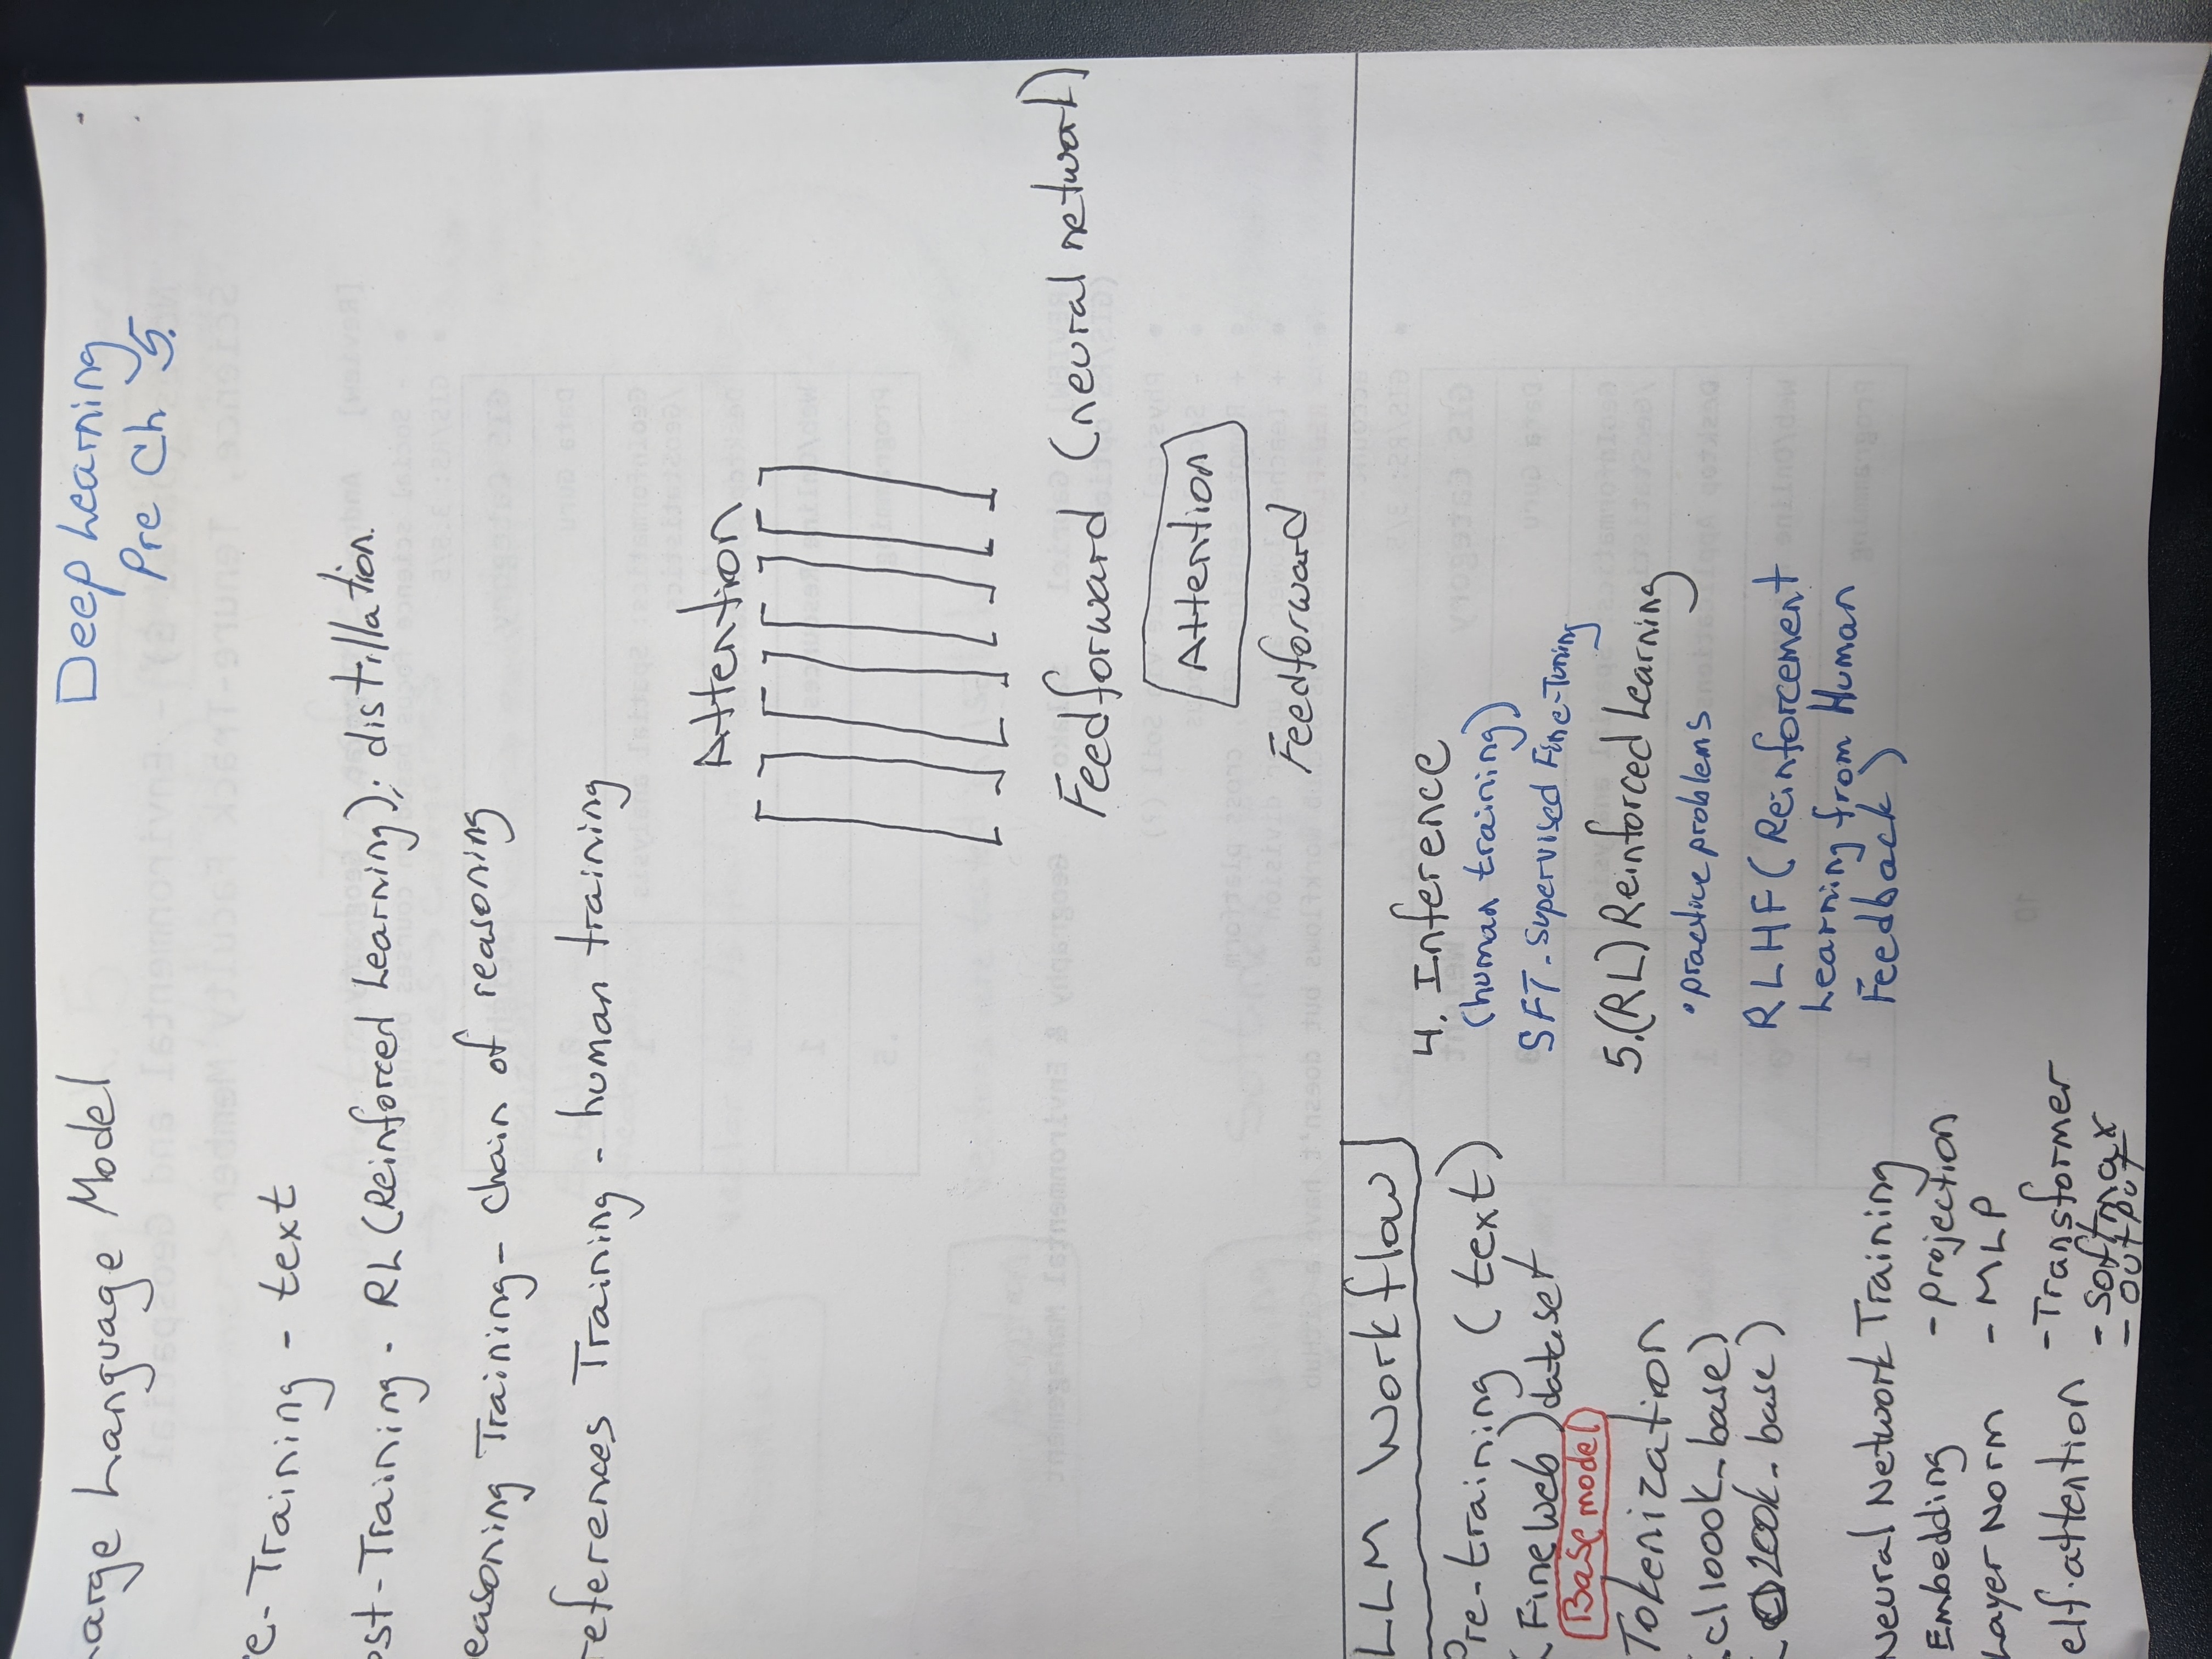 arge Language Model
Deep Learning
Pre Ch 5.
e-Training - text
ost-Training - RL (Reinforced Learning); distillation.
easoning Training - chain of reasoning
references Training - human training
Attention
Feedforward (neural network)
Attention
Feedforward
LLM Workflow
Pre-training (text)
(Fineweb) dataset
Base model
Tokenization
(cl1000k_base)
200k_base)
Neural Network Training
Embedding - projection
Layer Norm - MLP
elf-attention - Transformer
- Softmax
- output
4. Inference
(human training)
SFT - Supervised Fine-Tuning
5. (RL) Reinforced Learning
• practice problems
RLHF (Reinforcement
Learning from Human
Feedback)